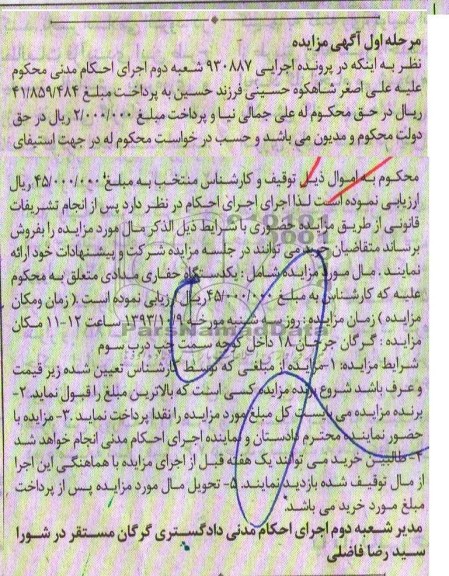 مرحله اول آگهی مزایده
نظر به اینکه در پرونده اجرایی ۹۳۰۸۸۷ شعبه دوم اجرای احکام مدنی محکوم
علیه علی اصغر شاهکوه حسینی فرزند حسین به پرداخت مبلغ ۴۱/۸۵۹/۴۸۴
ریال در حق محکوم له علی جمالی نیا و پرداخت مبلغ ۲/۰۰۰/۰۰۰ ریال در حق
دولت محکوم و مدیون می باشد و حسب در خواست محکوم له در جهت استیفای
محکوم به اموال ذیل توقیف و کارشناس منتخب به مبلغ ۴۵/۰۰۰/۰۰۰ ریال
ارزیابی نموده است لذا اجرای اجرای احکام در نظر دارد پس از انجام تشریفات
قانونی از طریق مزایده حضوری با شرایط ذیل الذکر مال مورد مزایده را بفروش
برساند متقاضیان خرید می توانند در جلسه مزایده شرکت و پیشنهادات خود ارائه
نمایند. مال مورد مزایده شامل: یکدستگاه حفاری میادی متعلق به محکوم
علیه که کارشناس به مبلغ ۴۵/۰۰۰/۰۰۰ ریال ارزیابی نموده است.( زمان ومکان
مزایده) زمان مزایده: روز شنبه مورخه ۱۳۹۳/۱۰/ ساعت ۱۲-۱۱ مکان
مزایده: گرگان جرجان ۱۸ داخل کوچه سمت چپ درب سوم
شرایط مزایده: ۱-مزایده از مبلغی که توسط کارشناس تعیین شده زیر قیمت
و عرف باشد شروع برنده مزایده کسی است که بالاترین مبلغ را قبول نماید. ۲-
برنده مزایده می بایست کل مبلغ مورد مزایده را نقدا پرداخت نماید. ۳- مزایده با
حضور نماینده محترم دادستان و نماینده اجرای احکام مدنی انجام خواهد شد
۴- طالبین خرید می توانند یک هفته قبل از اجرای مزایده با هماهنگی این اجرا
از مال توقیف شده بازدید نمایند. ۵- تحویل مال مورد مزایده پس از پرداخت
مبلغ مورد خرید می باشد.
مدیر شعبه دوم اجرای احکام مدنی دادگستری گرگان مستقر در شورا
سید رضا فاضلی